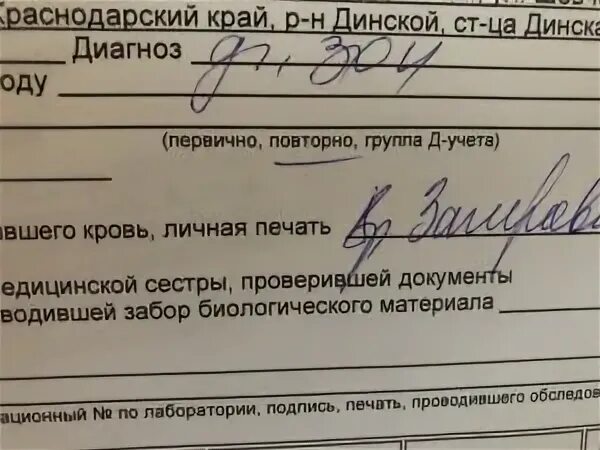 Краснодарский край, р-н Динской, ст-ца Динска
Диагноз
оду
(первично, повторно, группа Д-учета)
авшего кровь, личная печать
едицинской сестры, проверившей документы
водившей забор биологического материала
ационный № по лаборатории, подпись, печать, проводившего обследов